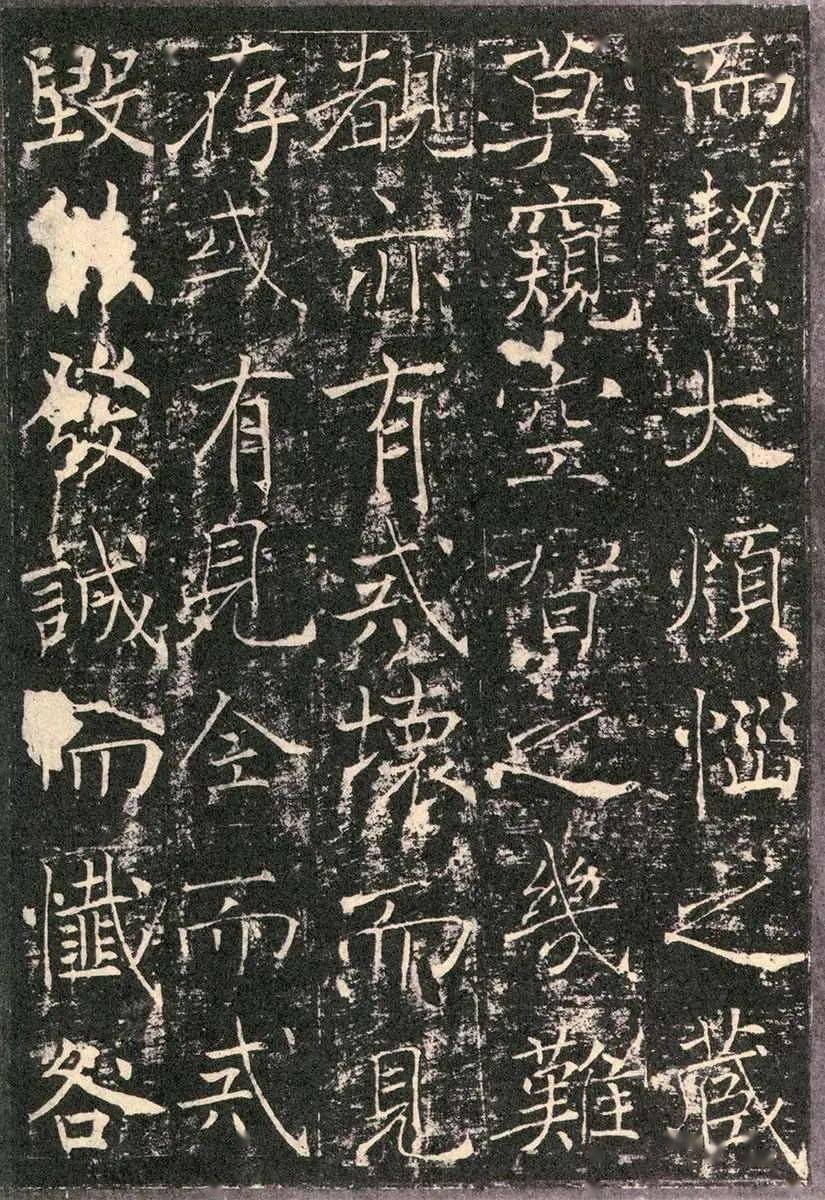 而絜大煩惱之藏
莫窺空之幾難
覩亦有戒壞而見
存或有見全而戒
毀發誠而懺咎